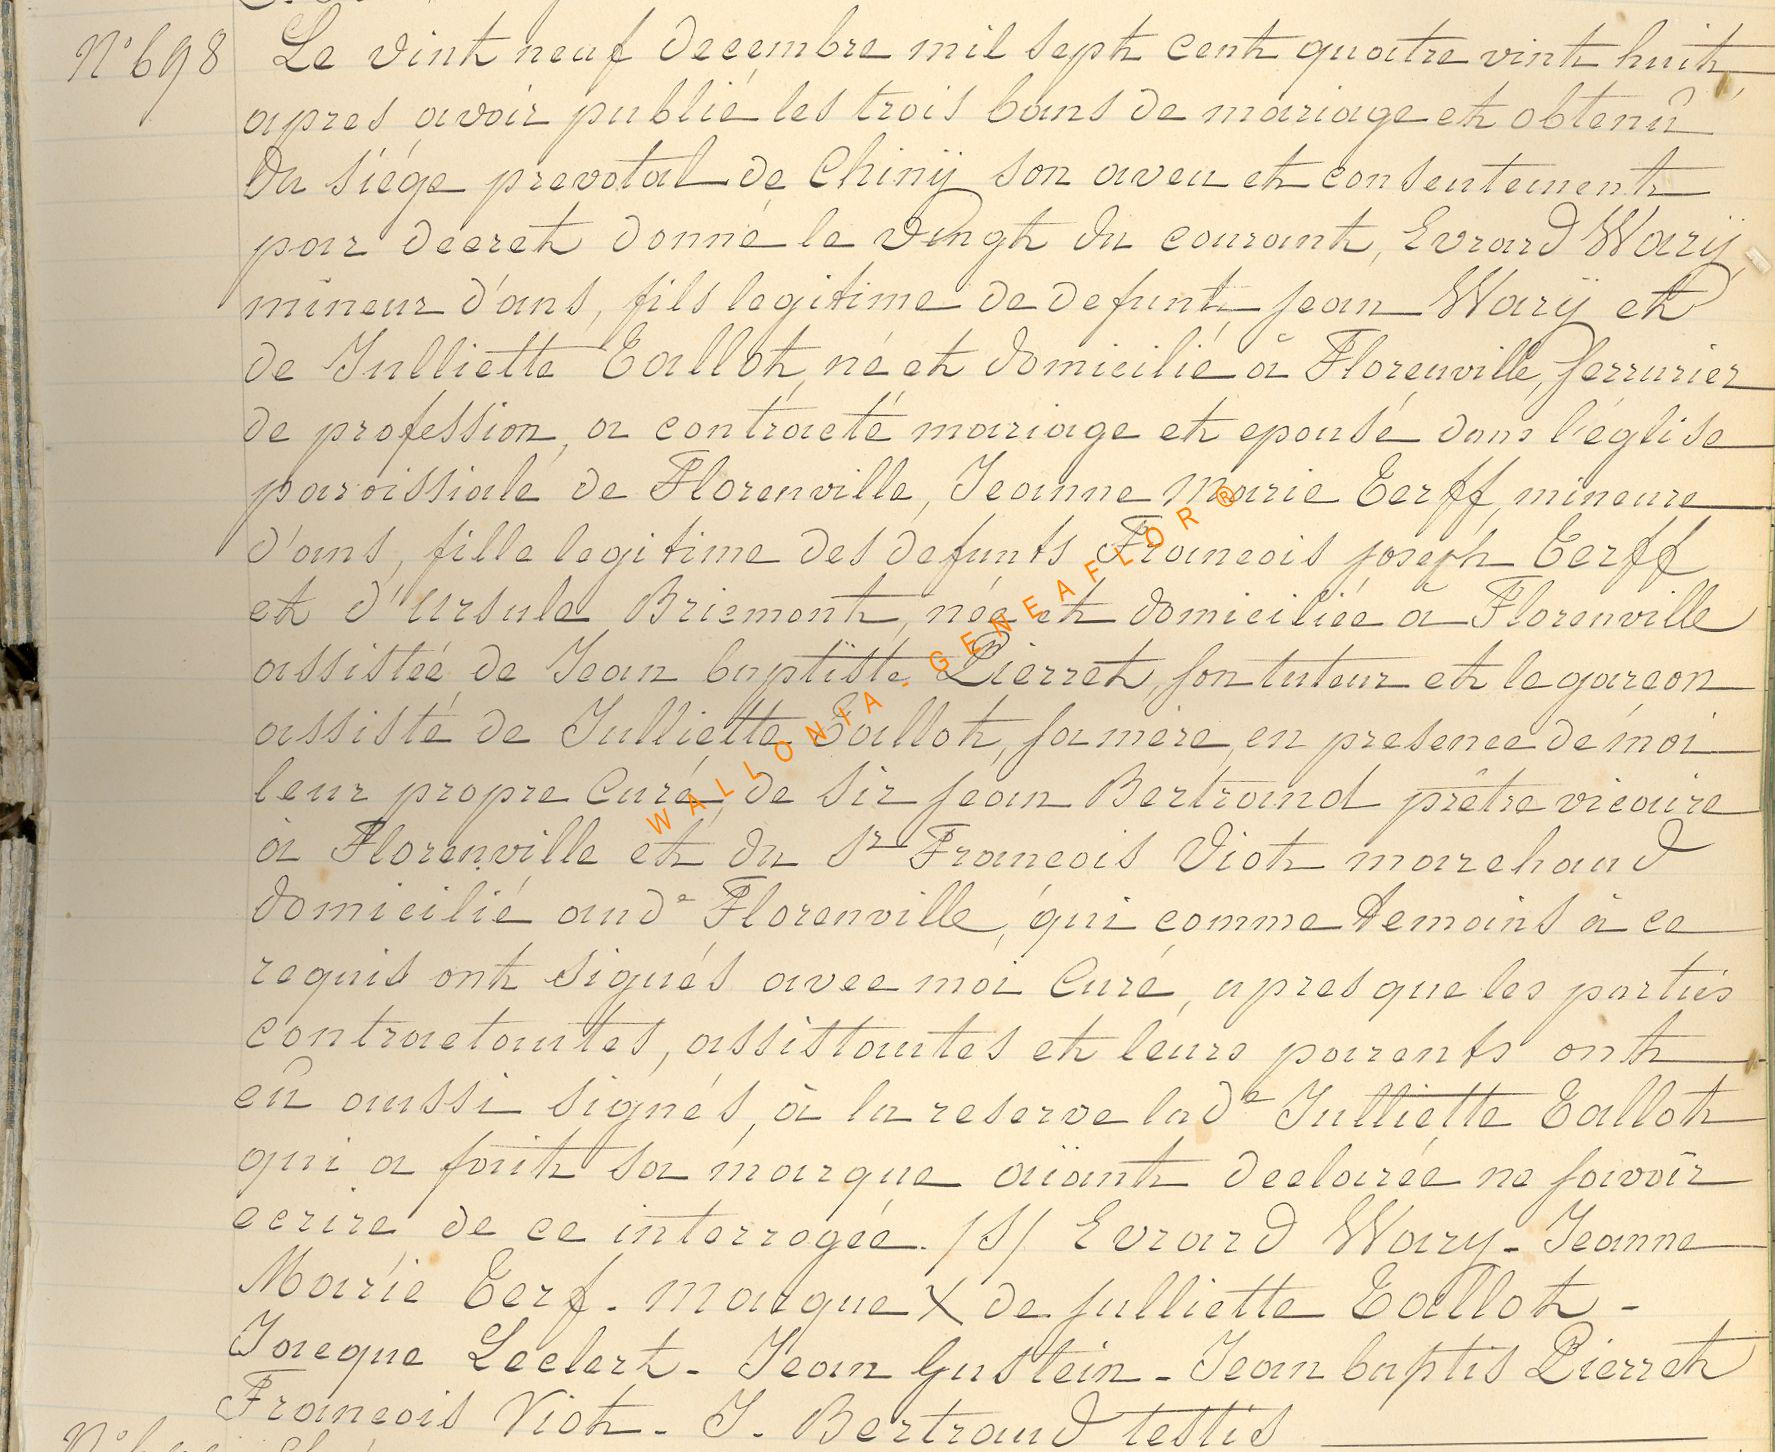 N° 698 Le vint neuf decembre mil sept cent quatre vint huit
apres avoir publié les trois bans de mariage et obtenû
du siége prevotal de Chinÿ son aveu et consentement
par decret donné le vingt du courant, Evrard Warÿ
mineur d'ans, fils legitime de defunt jean Warÿ et
de Julliette Tallot, né et domicilié à Florenville, serrurier
de profession, a contracté mariage et epousé dans l'église
paroissiale de Florenville, Jeanne Marie Cerff, mineure
d'ans, fille legitime des defunts Francois joseph Cerff
et d'Ursule Briemont, née et domiciliée à Florenville
assistée de Jean baptiste Pierret, son tuteur et le garcon
assisté de Julliette Tallot, sa mère, en presence de moi
leur propre Curé, de Sir jean Bertrand prêtre vicaire
à Florenville et du Sr Francois Viot marchand
domicilié aude Florenville, qui comme temoins à ce
requis ont signés avec moi Curé, apres que les partis
contractantes, assistantes et leurs parents ont
eû aussi signés, à la reserve lade Julliette Tallot
qui a fait sa marque aïant declarée ne savoir
ecrire de ce interrogée. /S/ Evrard Wary - Jeanne
Marie Cerf. marque X de julliette Tallot -
Jacque Leclert - Jean Gustein - Jean baptis Pierret
Francois Viot - J. Bertrand testis
WALLONIA - GENEAFLOR ®